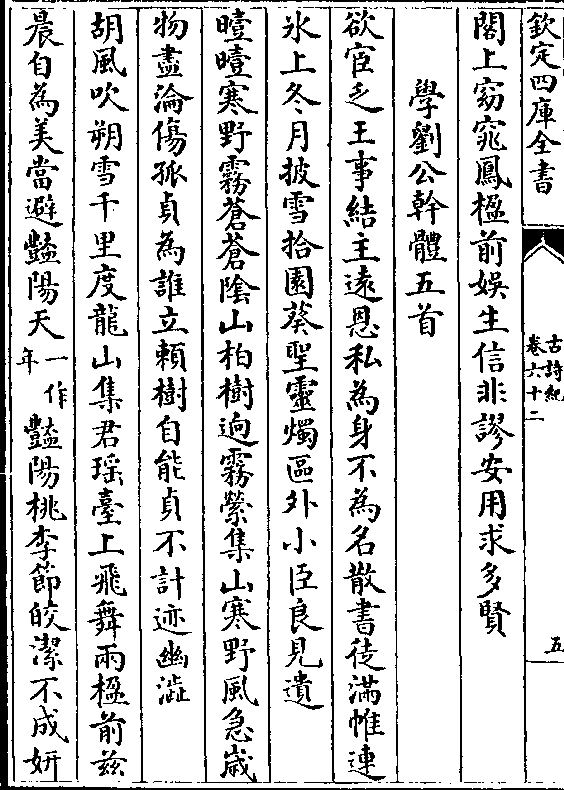 欽定四庫全書
古詩紀
卷六十二
五
閣上窈窕鳳楹前娱生信非謬安用求多賢
學劉公幹體五首
欲宦乏王事結主遠恩私為身不為名散書徒滿帷連
氷上冬月披雪拾園葵聖靈燭區外小臣良見遺
曀曀寒野霧蒼蒼陰山柏樹逈霧縈集山寒野風急嵗
物盡淪傷孤貞為誰立賴樹自能貞不計迹幽澁
胡風吹朔雪千里度龍山集君瑶臺上飛舞兩楹前兹
晨自為美當避豔陽天一作年豔陽桃李節皎潔不成妍